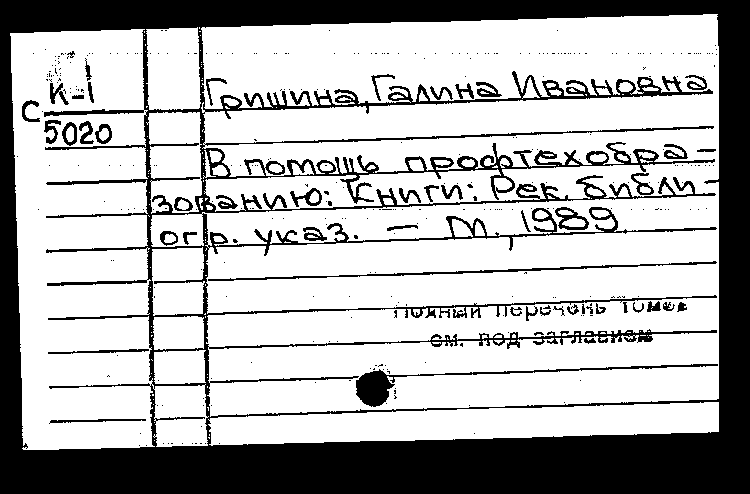 К-1
Гришина, Галина Ивановна
С
5020
В помощь профтехобра-
зованию: Книги: Рек. библи-
огр. указ. — М., 1989
Полный перечень томов
см. под заглавием